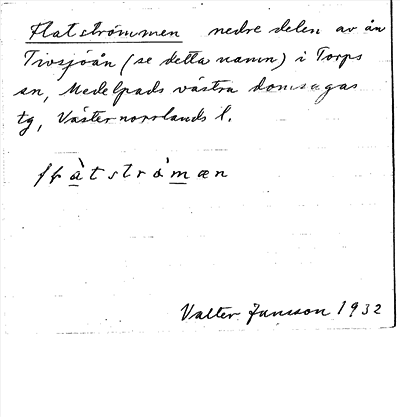 Flatströmmen nedre delen av ån
Tivsjöån (se detta namn) i Torps
sn, Medelpads västra domsagas
tg, Västernorrlands l.
flàtstrǿmæn
Valter Jansson 1932